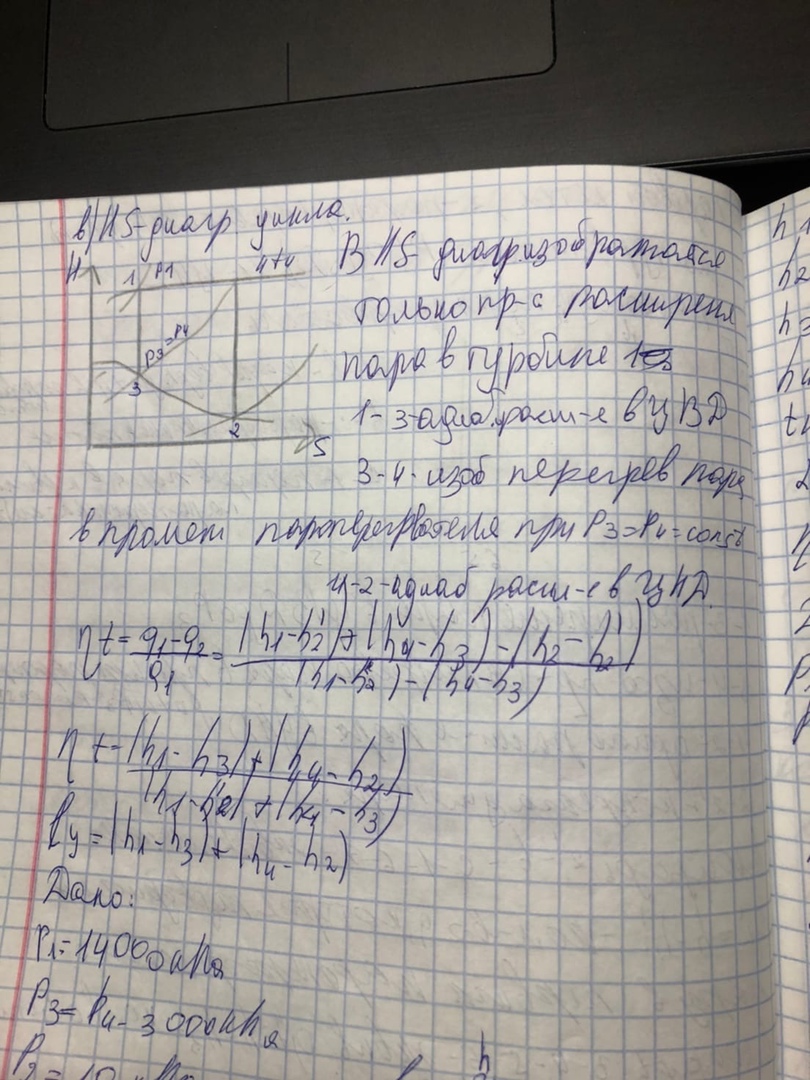 в) HS-диагр цикла.
H
1 P1
4 t4
P3=P4
3
2
S
В HS диагр.изображается
только пр-с расширения
пара в турбине
1-3-адиаб.расш-е в ЦВД
3-4-изоб перегрев пара
в промеж пароперегревателя при P3=P4=const
4-2-адиаб расш-е в ЦНД.
ηt=(q1-q2)/q1=((h1-h2')+(h4-h3)-(h2-h2'))/((h1-h2')-(h4-h3))
ηt-((h1-h3)+(h4-h2))/((h1-h2')+(h4-h3))
lц=(h1-h3)+(h4-h2)
Дано:
P1=14000кПа
P3=P4-3000кПа
P2=10 кПа
h1
h2
h3
h4